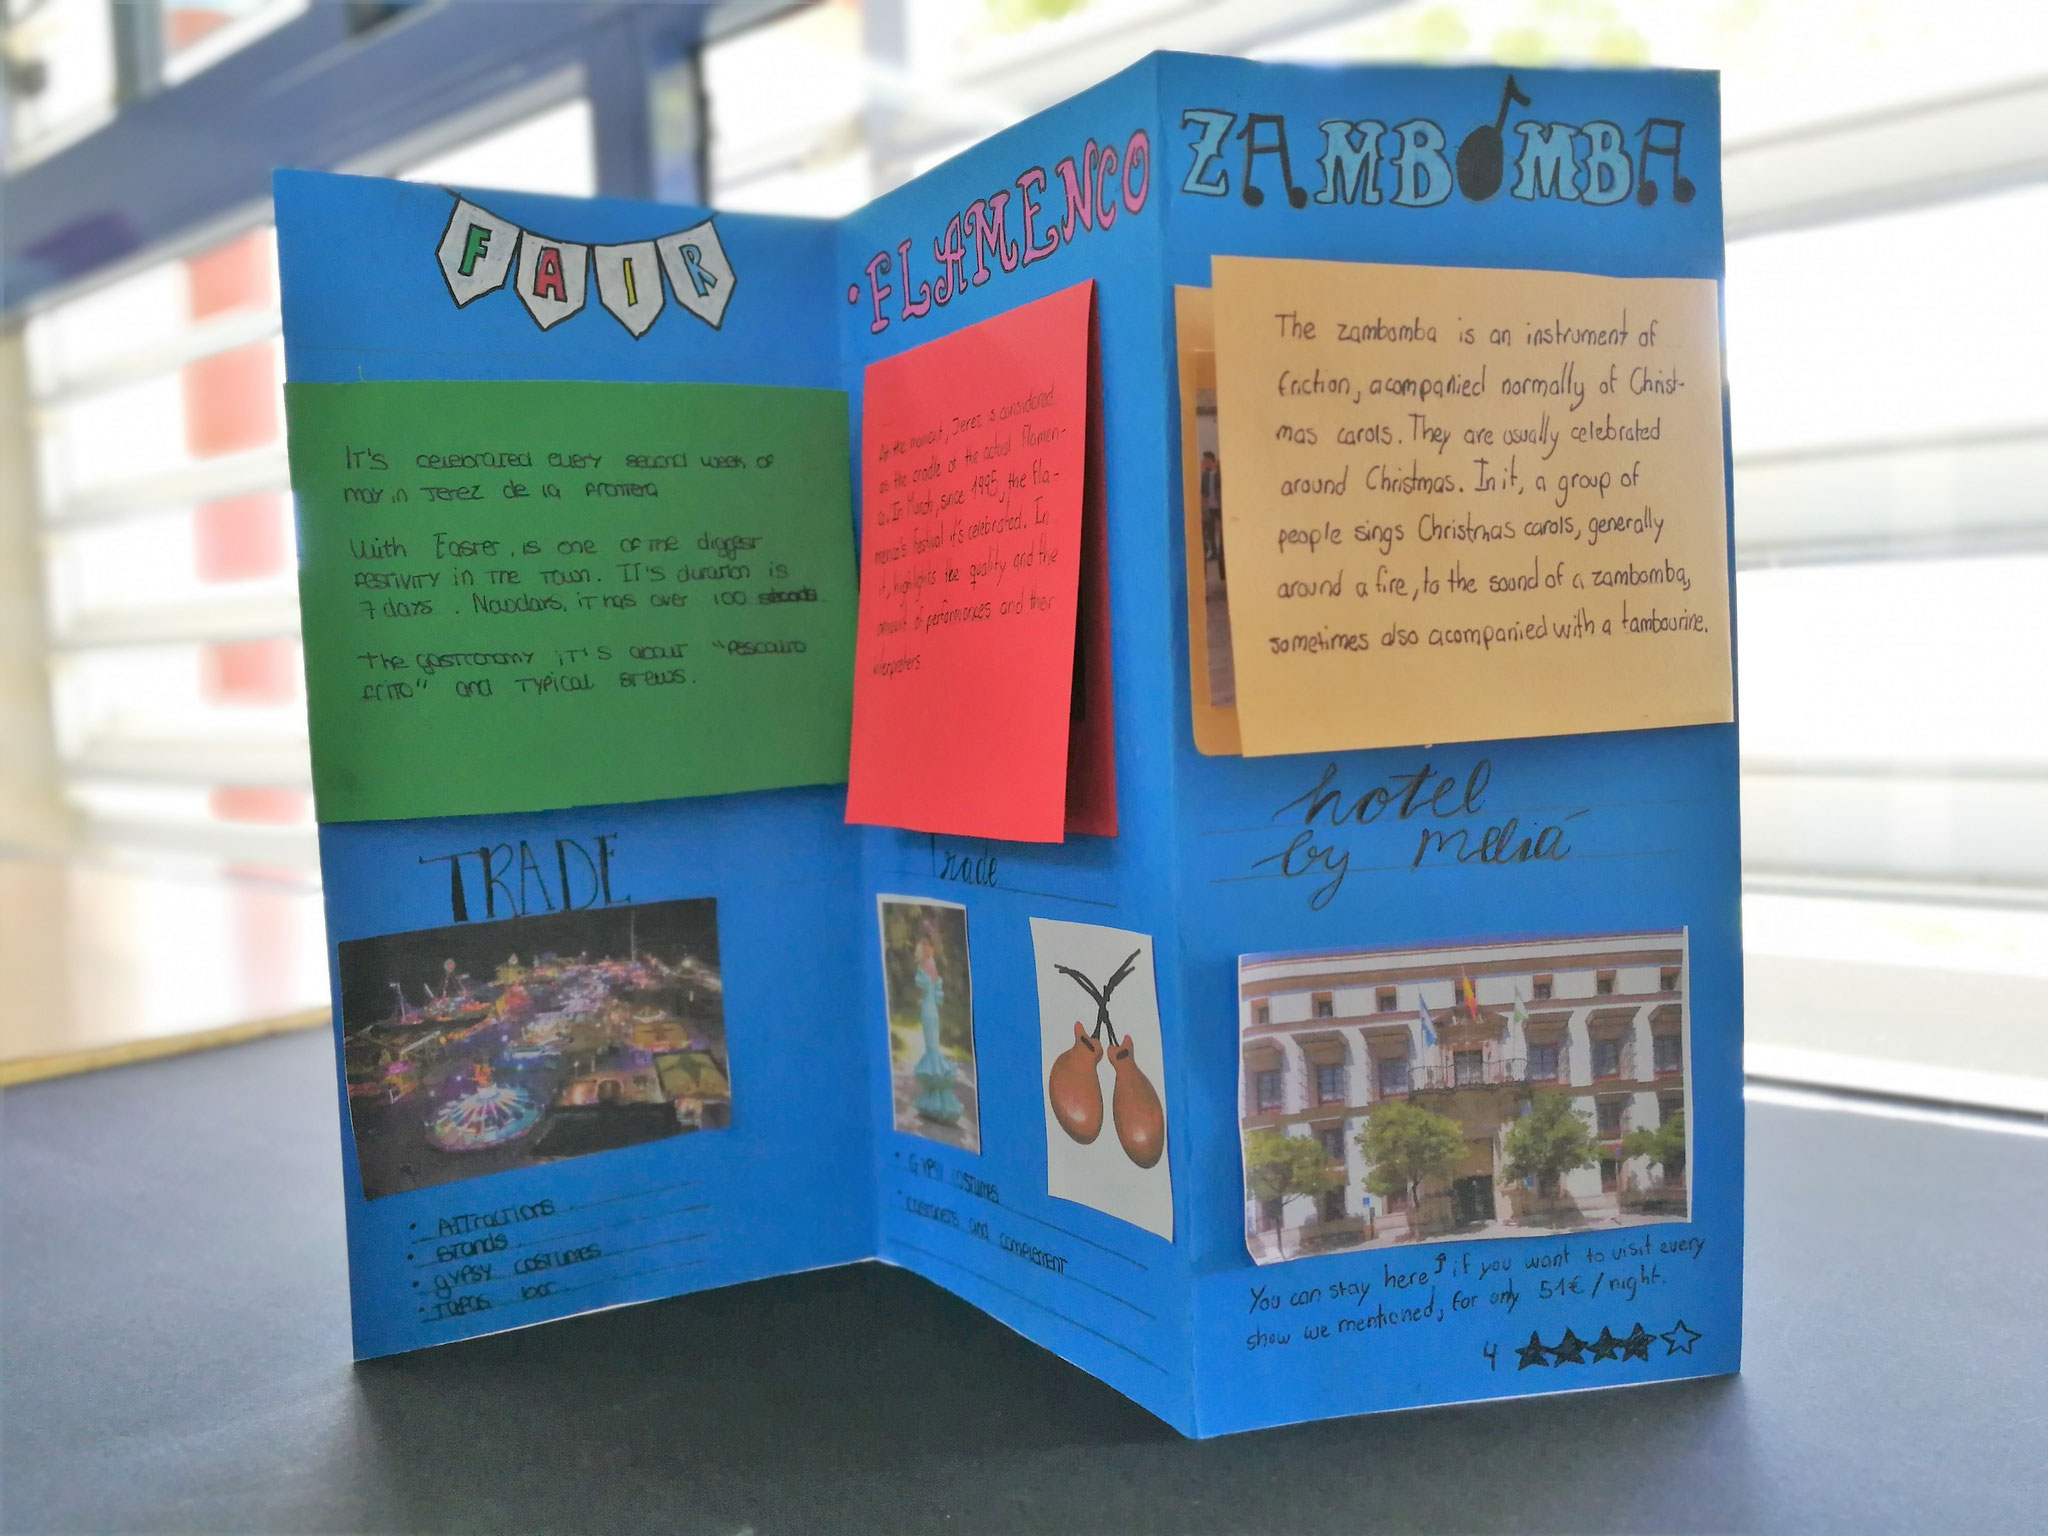 FAIR
It's celebrated every second week of
may in Jerez de la Frontera
With Easter, is one of the biggest
festivity in the town. It's duration is
7 days. Nowdars, it has over 100
The gastronomy it's about "Pescaito
frito" and typical stews.
TRADE
• Attractions
• Stands
• gypsy costumes
• Tapas bar
• FLAMENCO
At the moment, Jerez is considered
as the cradle of the actual Flamen-
co. In March, since 1995, the Fla-
menco's Festival it's celebrated. In
it, highlights the quality and the
amount of performances and their
interpreters.
Trade
• Gypsy costumes
• castanets and complement
ZAMBOMBA
The zambomba is an instrument of
friction, acompanied normally of Christ-
mas carols. They are usually celebrated
around Christmas. In it, a group of
people sings Christmas carols, generally
around a fire, to the sound of a zambomba,
sometimes also acompanied with a tambourine.
hotel
by meliá
You can stay here if you want to visit every
show we mentioned, for only 51€/night.
4 ★★★★☆